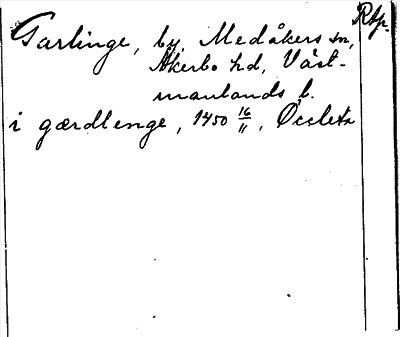 Rtp.
Garlinge, by, Medåkers sn,
Åkerbo hd, Väst-
manlands l.
i gærdlenge, 1450 16/11,